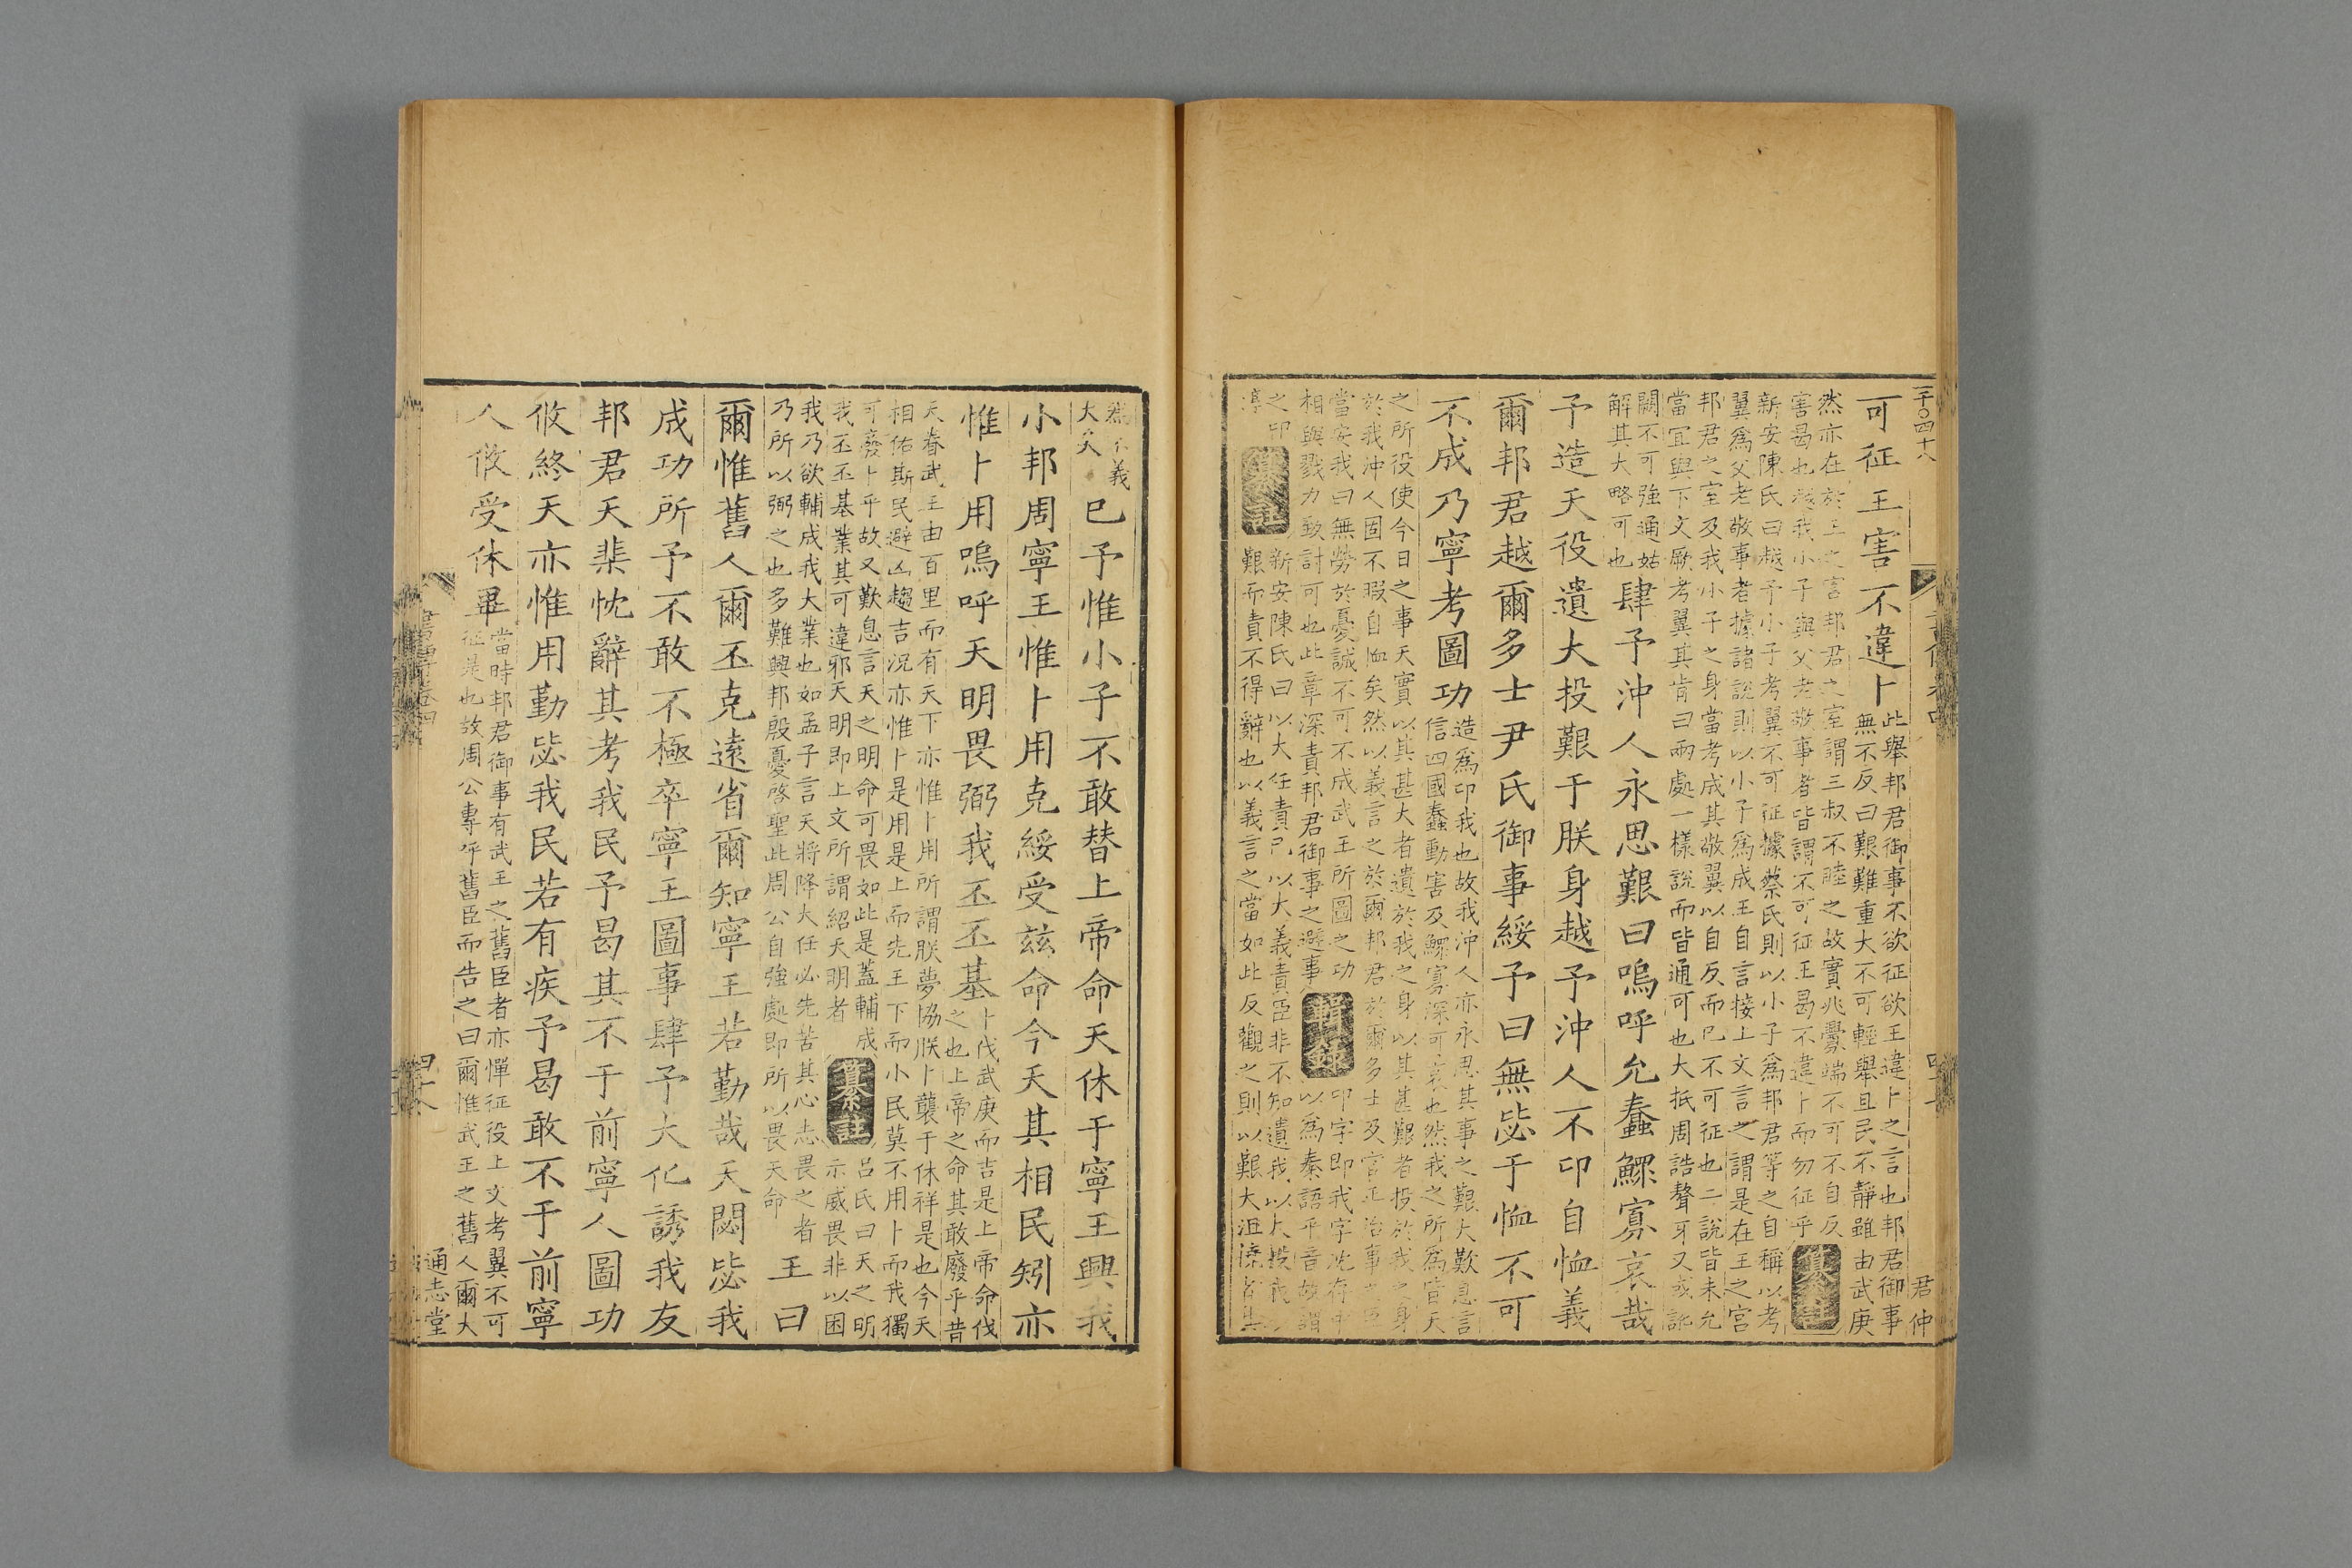 一千〇四十八
君仲
可征王害不違卜此舉邦君御事不欲征欲王違卜之言也邦君御事
無不反曰艱難重大不可輕舉且民不靜雖由武庚
然亦在於王之宮邦君之室謂三叔不睦之故實兆釁端不可不自反
害曷也越我小子與父老敬事者皆謂不可征王曷不違卜而勿征乎纂註
新安陳氏曰越予小子考翼不可征據蔡氏則以小子爲邦君等之自稱以考
翼爲父老敬事者據諸說則以小子爲成王自言接上文言之謂是在王之宮
邦君之室及我小子之身當考成其敬翼以自反而已不可征也二說皆未允
當宜與下文厥考翼其肯曰兩處一樣說而皆通可也大抵周誥聱牙又或訛
闕不可強通姑
解其大略可也
肆予沖人永思艱曰嗚呼允蠢鰥寡哀哉
予造天役遺大投艱于朕身越予沖人不卬自恤義
爾邦君越爾多士尹氏御事綏予曰無毖于恤不可
不成乃寧考圖功造爲卬我也故我沖人亦永思其事之艱大歎息言
信四國蠢動害及鰥寡深可哀也然我之所爲皆天
之所役使今日之事天實以其甚大者遺於我之身以其甚艱者投於我之身
於我沖人固不暇自恤矣然以義言之於爾邦君於爾多士及官正治事之臣
當安我曰無勞於憂誠不可不成武王所圖之功
相與戮力致討可也此章深責邦君御事之避事輯錄卬字即我字沈存中
以爲秦語平音故謂
之卬
纂註新安陳氏曰以大任責己以大義責臣非不知遺我以大投我以
艱而責不得辭也以義言之當如此反觀之則以艱大沮撓者其
爲不義
大矣
已予惟小子不敢替上帝命天休于寧王興我
小邦周寧王惟卜用克綏受茲命今天其相民矧亦
惟卜用嗚呼天明畏弼我丕丕基卜伐武庚而吉是上帝命伐
之也上帝之命其敢廢乎昔
天眷武王由百里而有天下亦惟卜用所謂朕夢協朕卜襲于休祥是也今天
相佑斯民避凶趨吉況亦惟卜是用是上而先王下而小民莫不用卜而我獨
可廢卜乎故又歎息言天之明命可畏如此是蓋輔成
我丕丕基業其可違邪天明即上文所謂紹天明者纂註呂氏曰天之明
示威畏非以困
我乃欲輔成我大業也如孟子言天將降大任必先苦其心志畏之者
乃所以弼之也多難興邦殷憂啓聖此周公自強處即所以畏天命
王曰
爾惟舊人爾丕克遠省爾知寧王若勤哉天閟毖我
成功所予不敢不極卒寧王圖事肆予大化誘我友
邦君天棐忱辭其考我民予曷其不于前寧人圖功
攸終天亦惟用勤毖我民若有疾予曷敢不于前寧
人攸受休畢當時邦君御事有武王之舊臣者亦憚征役上文考翼不可
征是也故周公專呼舊臣而告之曰爾惟武王之舊人爾大
通志堂